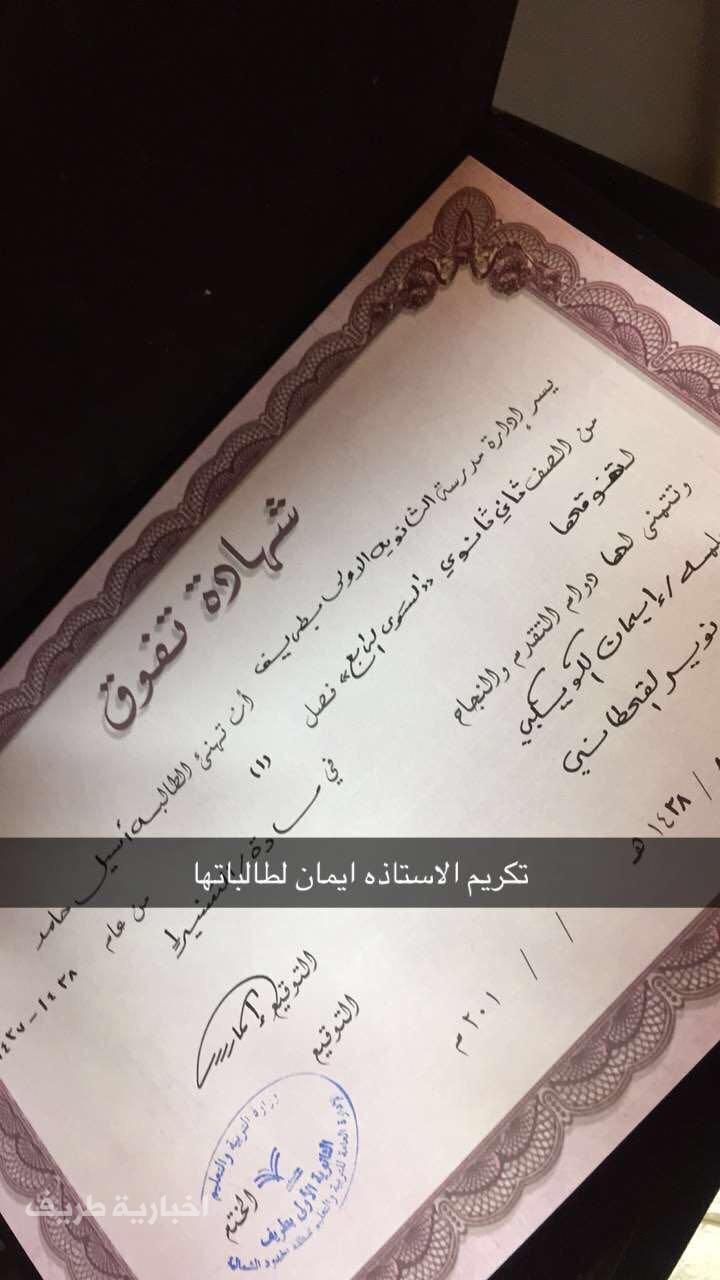 شهادة تفوق
يسر إدارة مدرسة الثانوية الاولى بطريف أن تهنئ الطالبة أسيل حامد
من الصف ثاني ثانوي «المستوى الرابع» فصل (١) من عام ١٤٣٧-١٤٣٨
لتفوقها في مادة /
وتتمنى لها دوام التقدم والنجاح
/ إيمان الكويكبي التوقيع
نوير القحطاني التوقيع
/ ١٤٣٨ هـ / / ٢٠١ م
الختم
وزارة التربية والتعليم
الثانوية الأولى بطريف
تكريم الاستاذه ايمان لطالباتها
اخبارية طريف